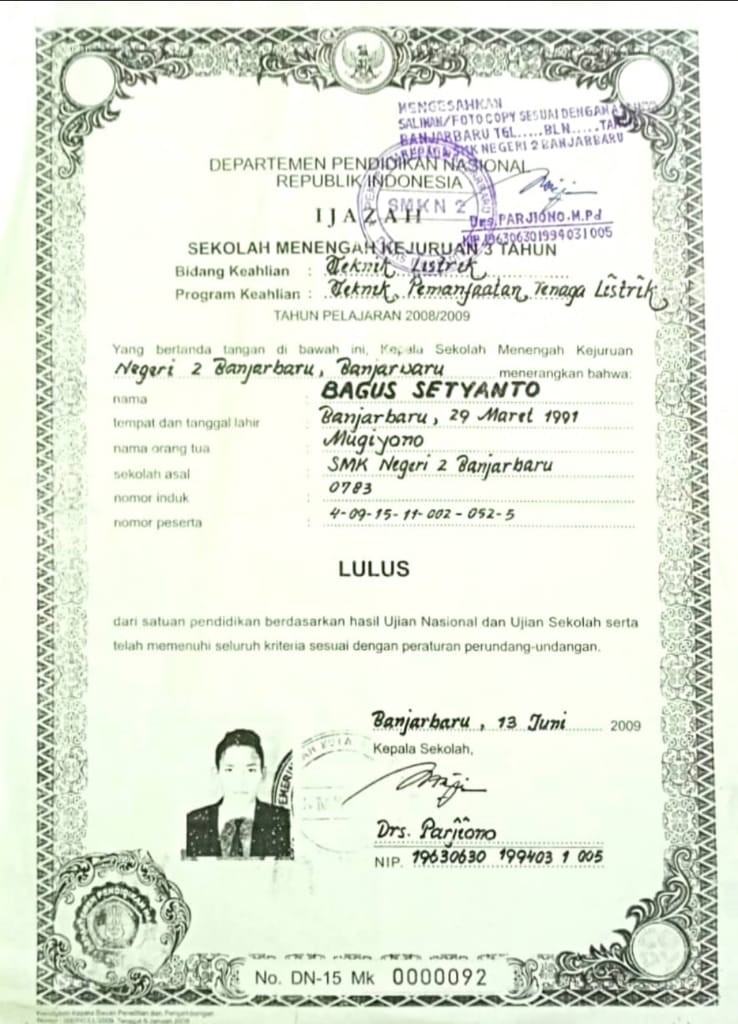 MENGESAHKAN
SALINAN/FOTOCOPY SESUAI DENGAN A
BANJARBARU TGL.....BLN.....TA
KEPALA SMK NEGERI 2 BANJARBARU
SMKN 2
Drs. PARJIONO. M.Pd
NIP. 196306301994031005
DEPARTEMEN PENDIDIKAN NASIONAL
REPUBLIK INDONESIA
IJAZAH
SEKOLAH MENENGAH KEJURUAN 3 TAHUN
Bidang Keahlian : Teknik Listrik
Program Keahlian : Teknik Pemanfaatan Tenaga Listrik
TAHUN PELAJARAN 2008/2009
Yang bertanda tangan di bawah ini, Kepala Sekolah Menengah Kejuruan
Negeri 2 Banjarbaru, Banjarbaru menerangkan bahwa:
nama : BAGUS SETYANTO
tempat dan tanggal lahir : Banjarbaru, 29 Maret 1991
nama orang tua : Mugiyono
sekolah asal : SMK Negeri 2 Banjarbaru
nomor induk : 0783
nomor peserta : 4-09-15-11-002-052-5
LULUS
dari satuan pendidikan berdasarkan hasil Ujian Nasional dan Ujian Sekolah serta
telah memenuhi seluruh kriteria sesuai dengan peraturan perundang-undangan.
Banjarbaru, 13 Juni 2009
Kepala Sekolah,
Drs. Parjiono
NIP. 19630630 199403 1 005
No. DN-15 Mk 0000092